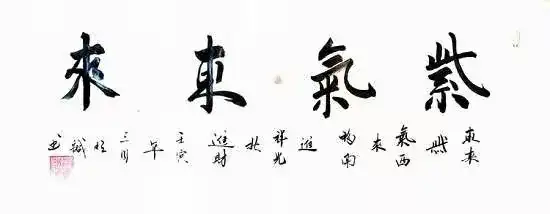 紫氣東來
東來
紫
氣西
來
福南
進
祥光
北
進財
壬寅
年
三月